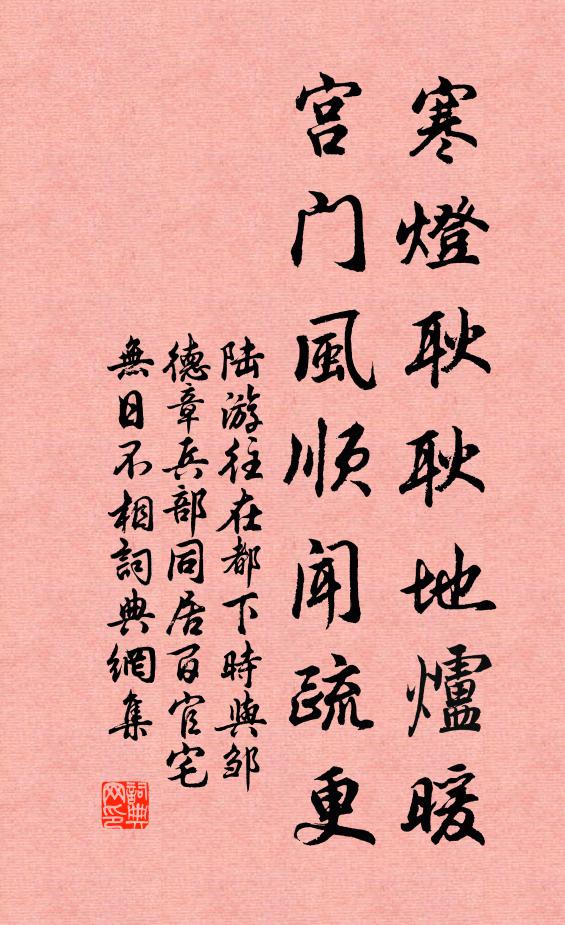 寒燈耿耿地爐暖
宫门風順闻疏更
陆游往在都下時與邹
德章兵部同居百官宅
無日不相詞典網集
詞典
网印